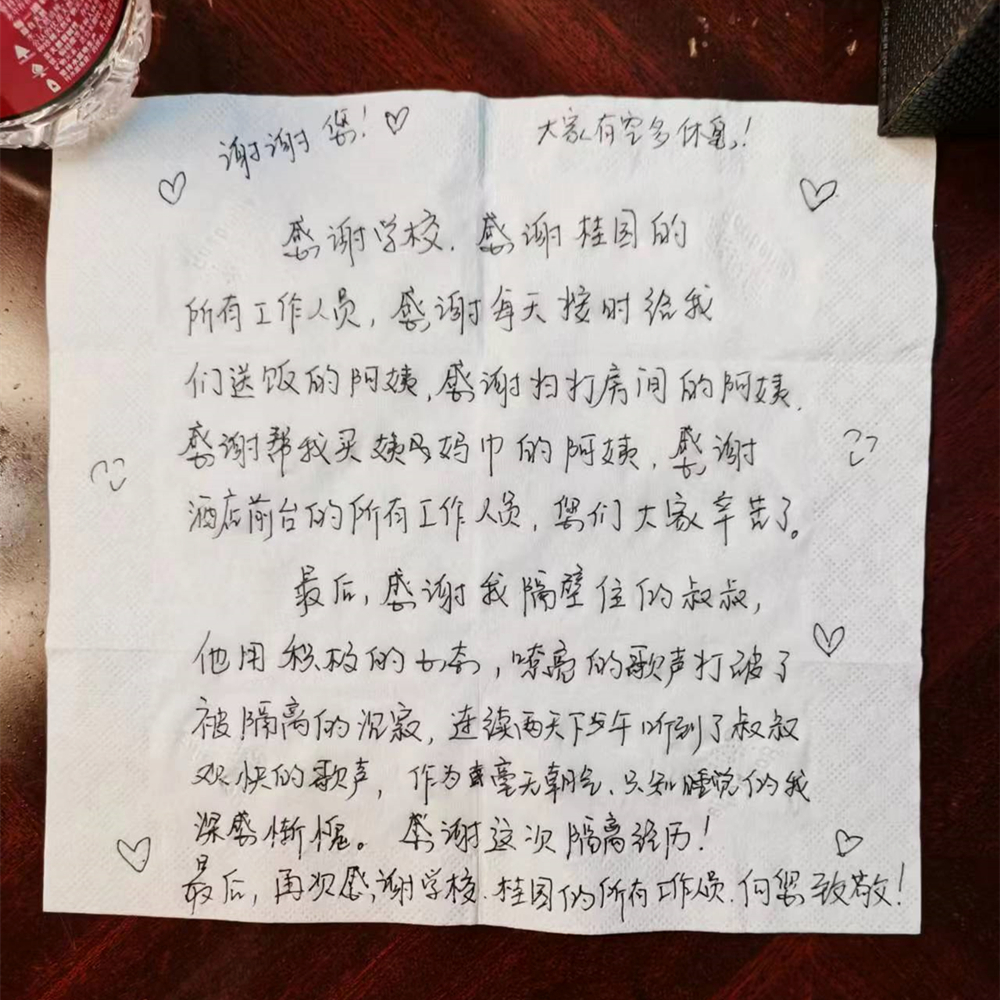 谢谢您!
大家有空多休息!
感谢学校、感谢桂园的
所有工作人员,感谢每天按时给我
们送饭的阿姨,感谢扫打房间的阿姨、
感谢帮我买姨妈巾的阿姨、感谢
酒店前台的所有工作人员,您们大家辛苦了。
最后,感谢我隔壁住的叔叔,
他用积极的心态,嘹亮的歌声打破了
被隔离的沉寂,连续两天下午听到了叔叔
欢快的歌声,作为毫无朝气、只知睡觉的我
深感惭愧。感谢这次隔离经历!
最后,再次感谢学校、桂园的所有工作人员、向您致敬!